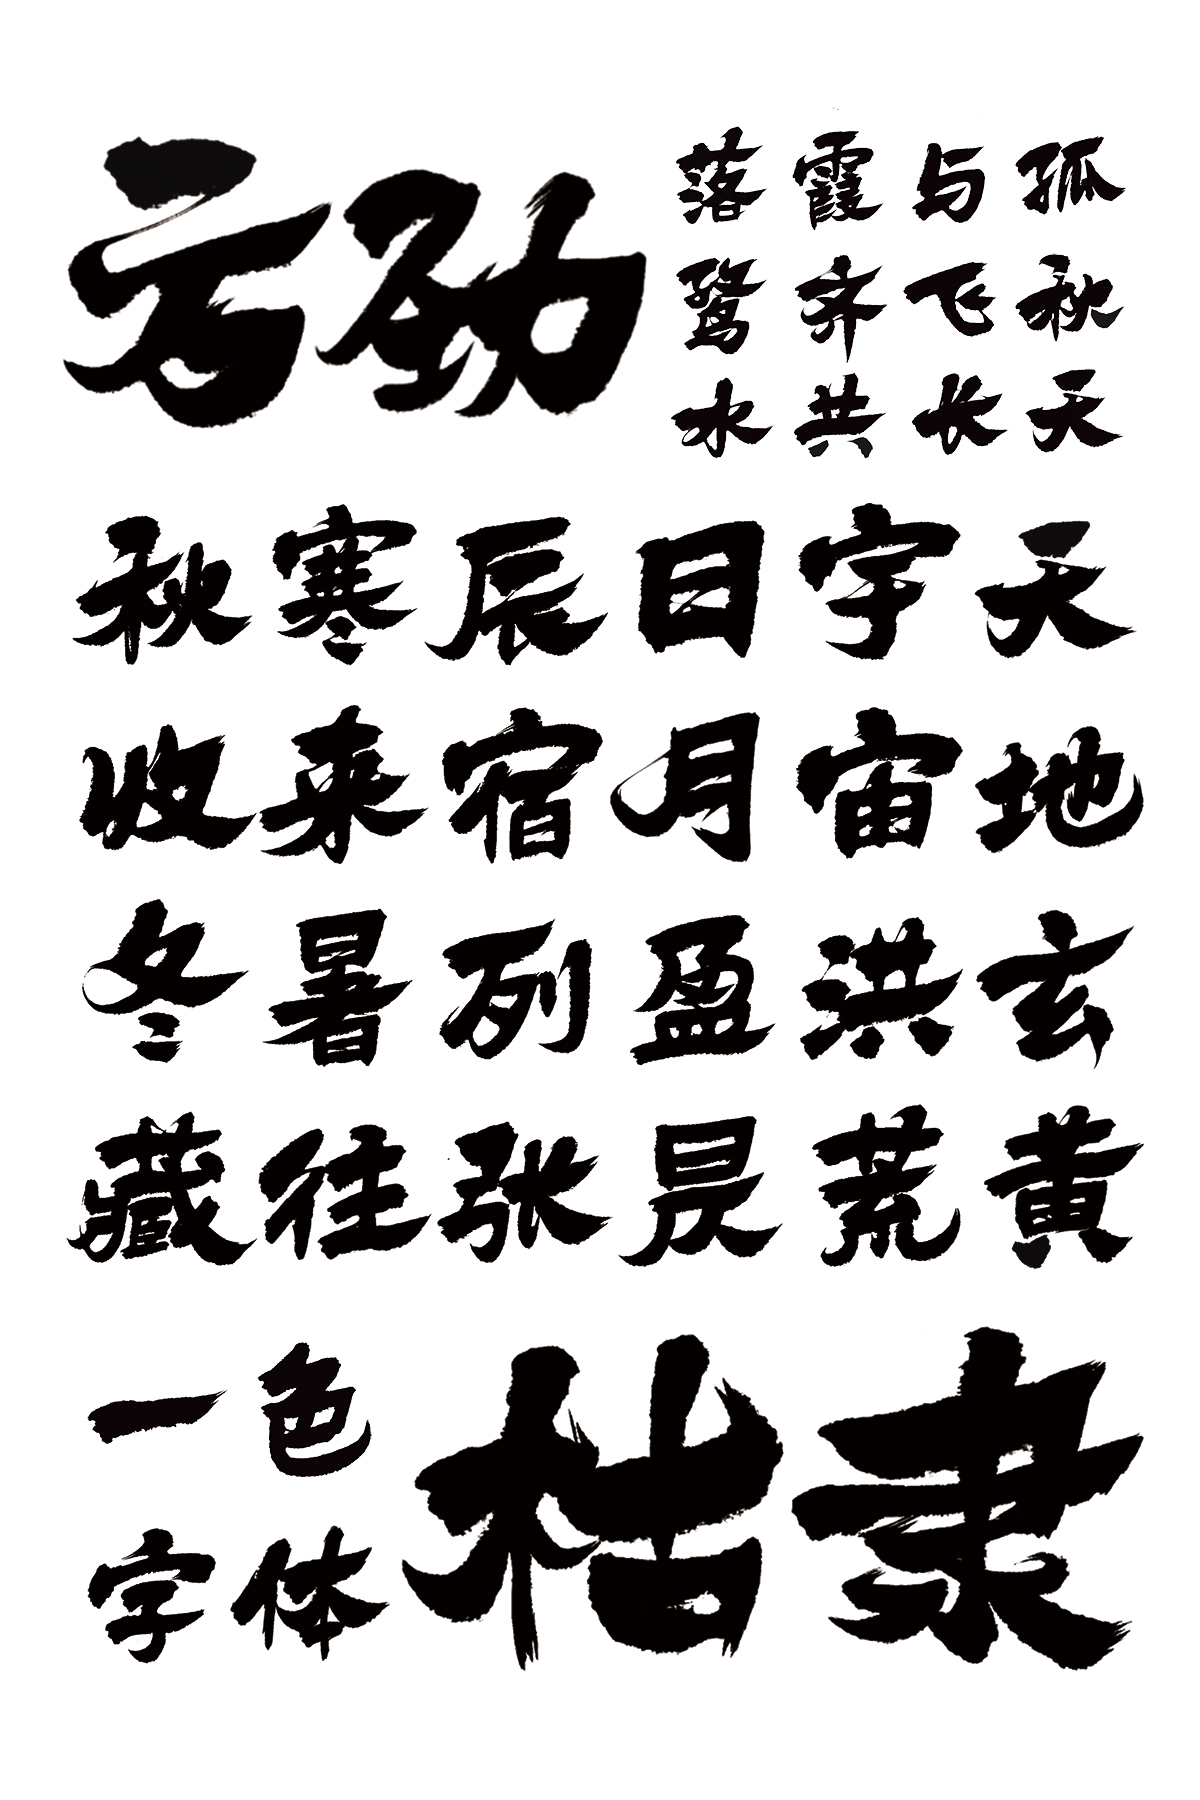 方劲
落霞与孤
鹜齐飞秋
水共长天
天地玄黄
宇宙洪荒
日月盈昃
辰宿列张
寒来暑往
秋收冬藏
一色
字体
枯隶